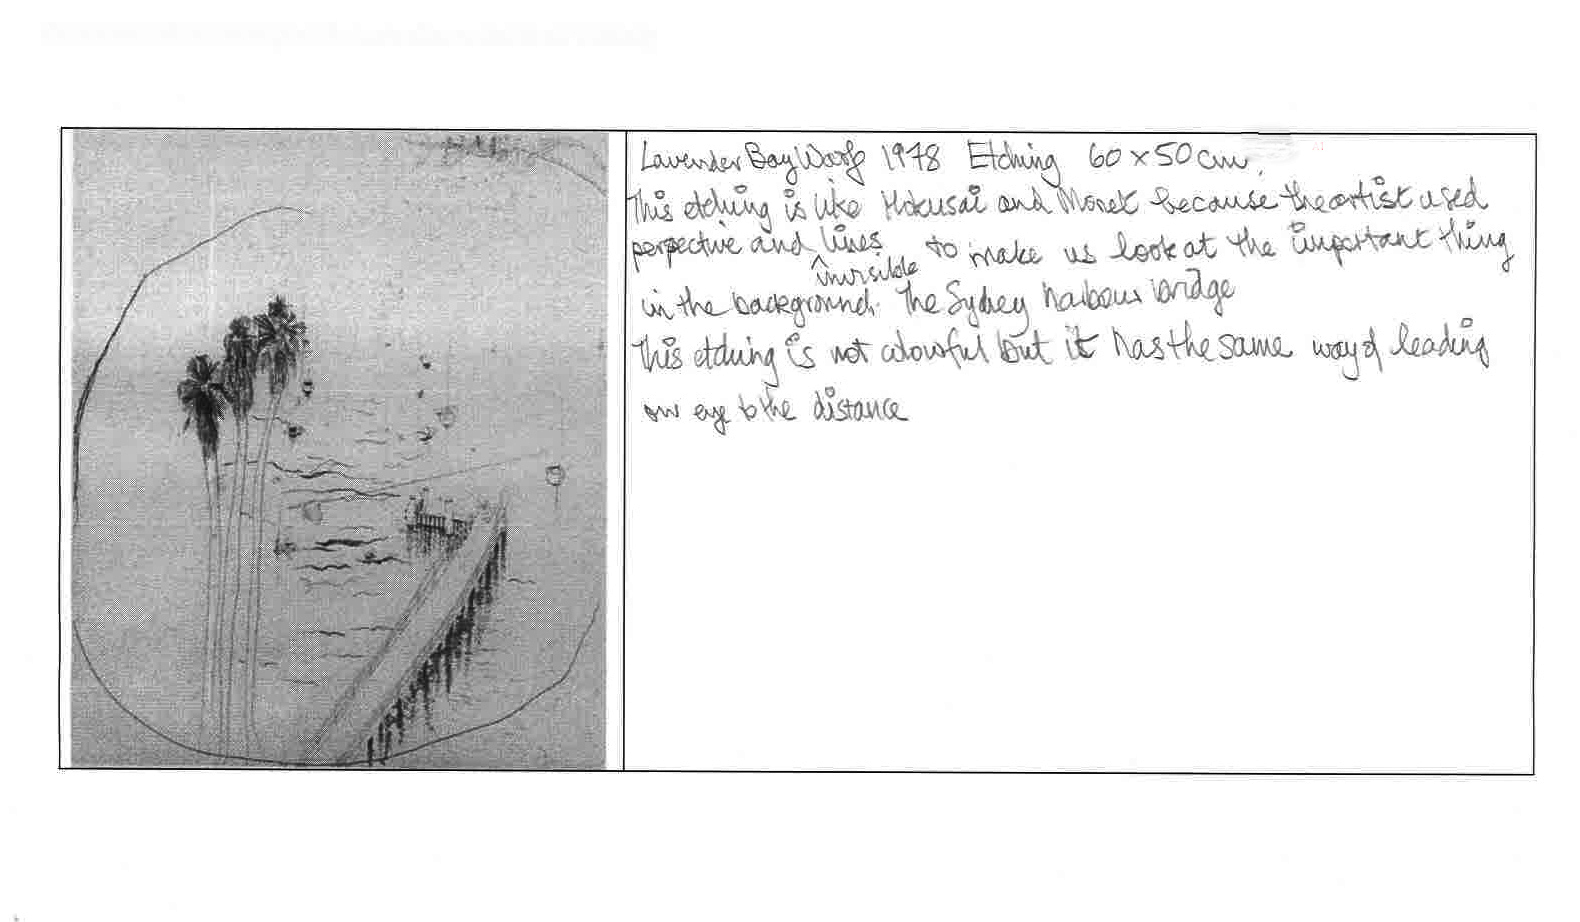 Lavender Bay Warf 1978 Etching 60 x 50 cm.
This etching is like Hokusai and Monet because the artist used
perpective and invisible lines to make us look at the important thing
in the background. The Sydney harbour bridge
This etching is not colourful but it has the same way of leading
our eye to the distance